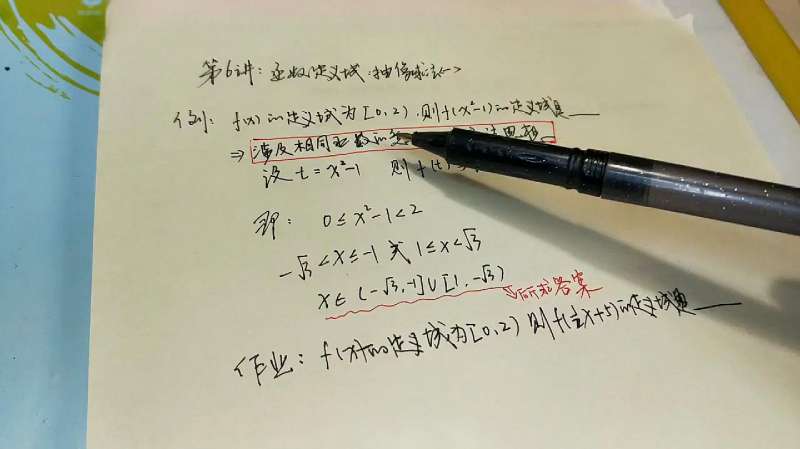 第6讲：函数定义域：抽象求法<1>
例：f(x)的定义域为[0,2)，则f(x²-1)的定义域是___
⇒ 涉及相同函数的
设 t=x²-1 则 f(t)
即： 0≤x²-1<2
-√3<x≤-1 或 1≤x<√3
x∈(-√3,-1]∪[1,-√3) 所求答案
作业：f(x)的定义域为[0,2) 则f(½x+5)的定义域是___